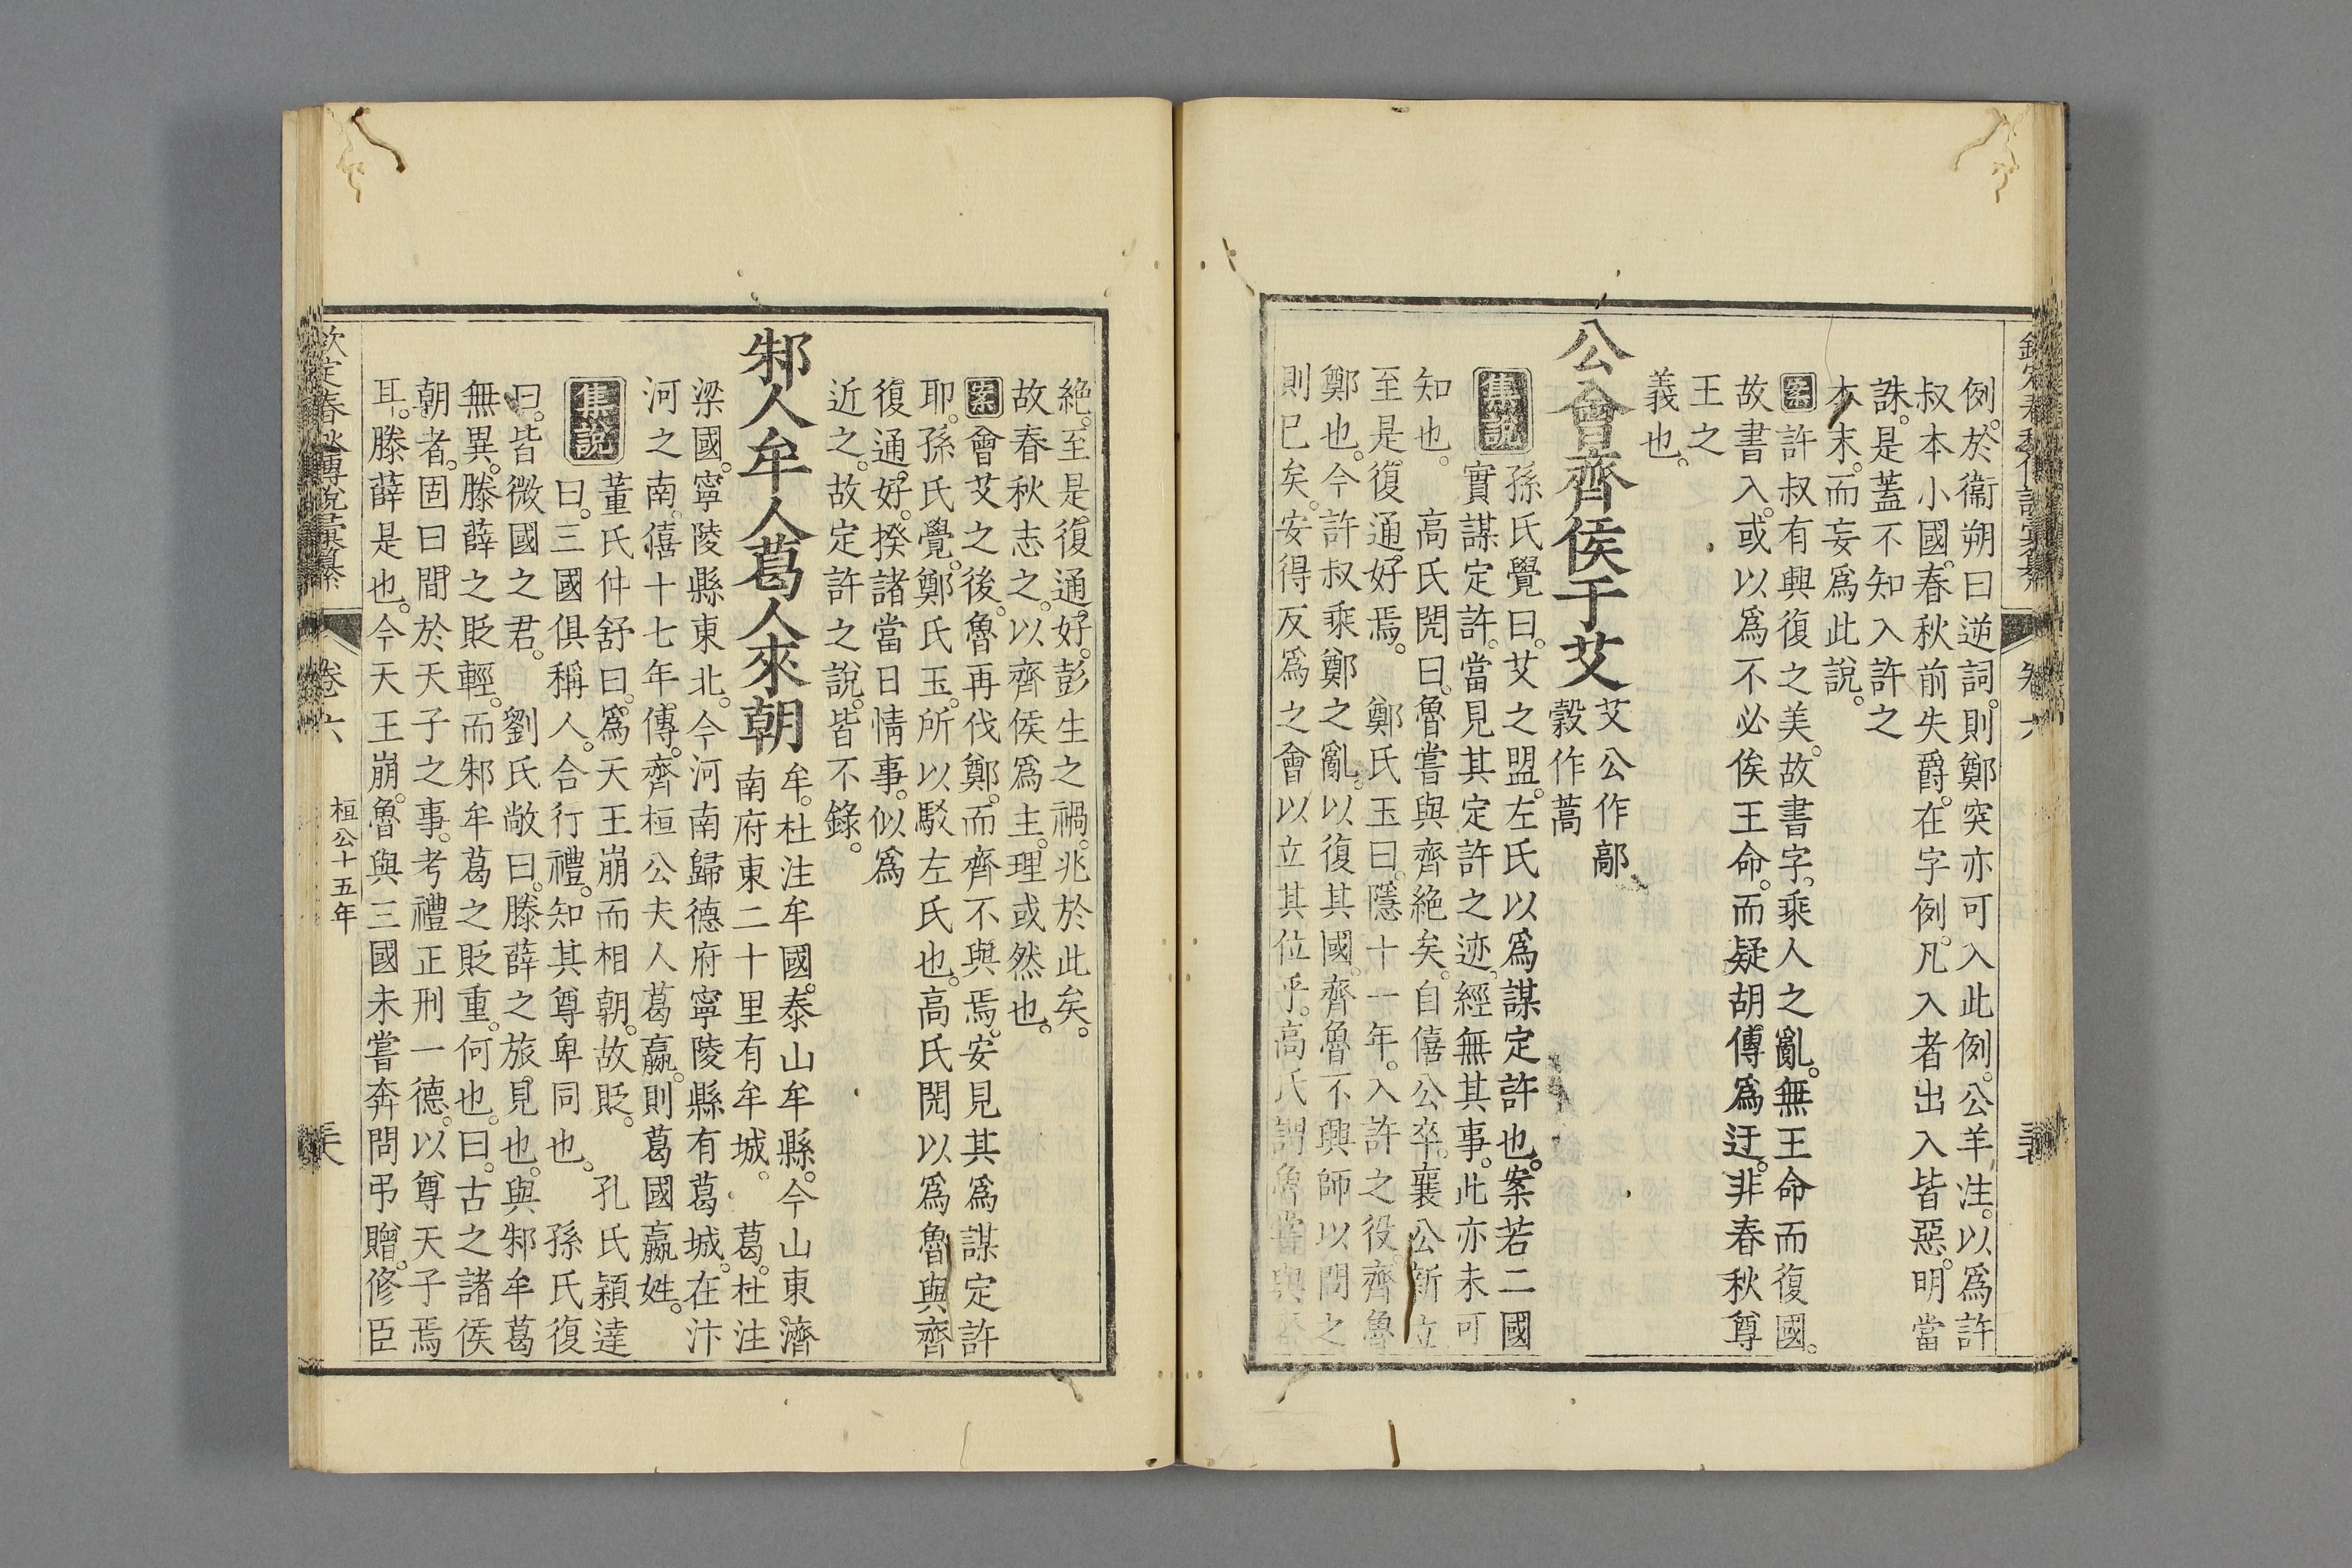 例。於衞朔曰逆詞。則鄭突亦可入此例。公羊注。以爲許
叔本小國。春秋前失爵。在字例。凡入者出入皆惡。明當
誅。是蓋不知入許之
本末。而妄爲此說。
案許叔有興復之美。故書字。乘人之亂。無王命而復國。
故書入。或以爲不必俟王命。而疑胡傳爲迂。非春秋尊
王之
義也。
公會齊侯于艾
艾公作鄗
穀作蒿
集說
孫氏覺曰。艾之盟。左氏以爲謀定許也。案若二國
實謀定許。當見其定許之迹。經無其事。此亦未可
知也。 高氏閌曰。魯嘗與齊絶矣。自僖公卒。襄公新立
至是復通好焉。 鄭氏玉曰。隱十一年。入許之役。齊魯
鄭也。今許叔乘鄭之亂。以復其國。齊魯不興師以問之
則已矣。安得反爲之會以立其位乎。高氏謂魯嘗與齊
絶。至是復通好。彭生之禍。兆於此矣。
故春秋志之。以齊侯爲主。理或然也。
案會艾之後。魯再伐鄭。而齊不與焉。安見其爲謀定許
耶。孫氏覺。鄭氏玉。所以駁左氏也。高氏閌以爲魯與齊
復通好。揆諸當日情事。似爲
近之。故定許之說。皆不錄。
邾人牟人葛人來朝
牟。杜注牟國。泰山牟縣。今山東濟
南府東二十里有牟城。 葛。杜注
梁國。寧陵縣東北。今河南歸德府寧陵縣有葛城。在汴
河之南。僖十七年傳。齊桓公夫人葛嬴。則葛國嬴姓。
集說
董氏仲舒曰。爲天王崩而相朝。故貶。 孔氏穎達
曰。三國俱稱人。合行禮。知其尊卑同也。 孫氏復
曰。皆微國之君。 劉氏敞曰。滕薛之旅見也。與邾牟葛
無異。滕薛之貶輕。而邾牟葛之貶重。何也。曰。古之諸侯
朝者。固曰。間於天子之事。考禮正刑一德。以尊天子焉
耳。滕薛是也。今天王崩。魯與三國未嘗奔問弔贈。修臣
欽定春秋傳說彙纂 卷六 桓公十五年